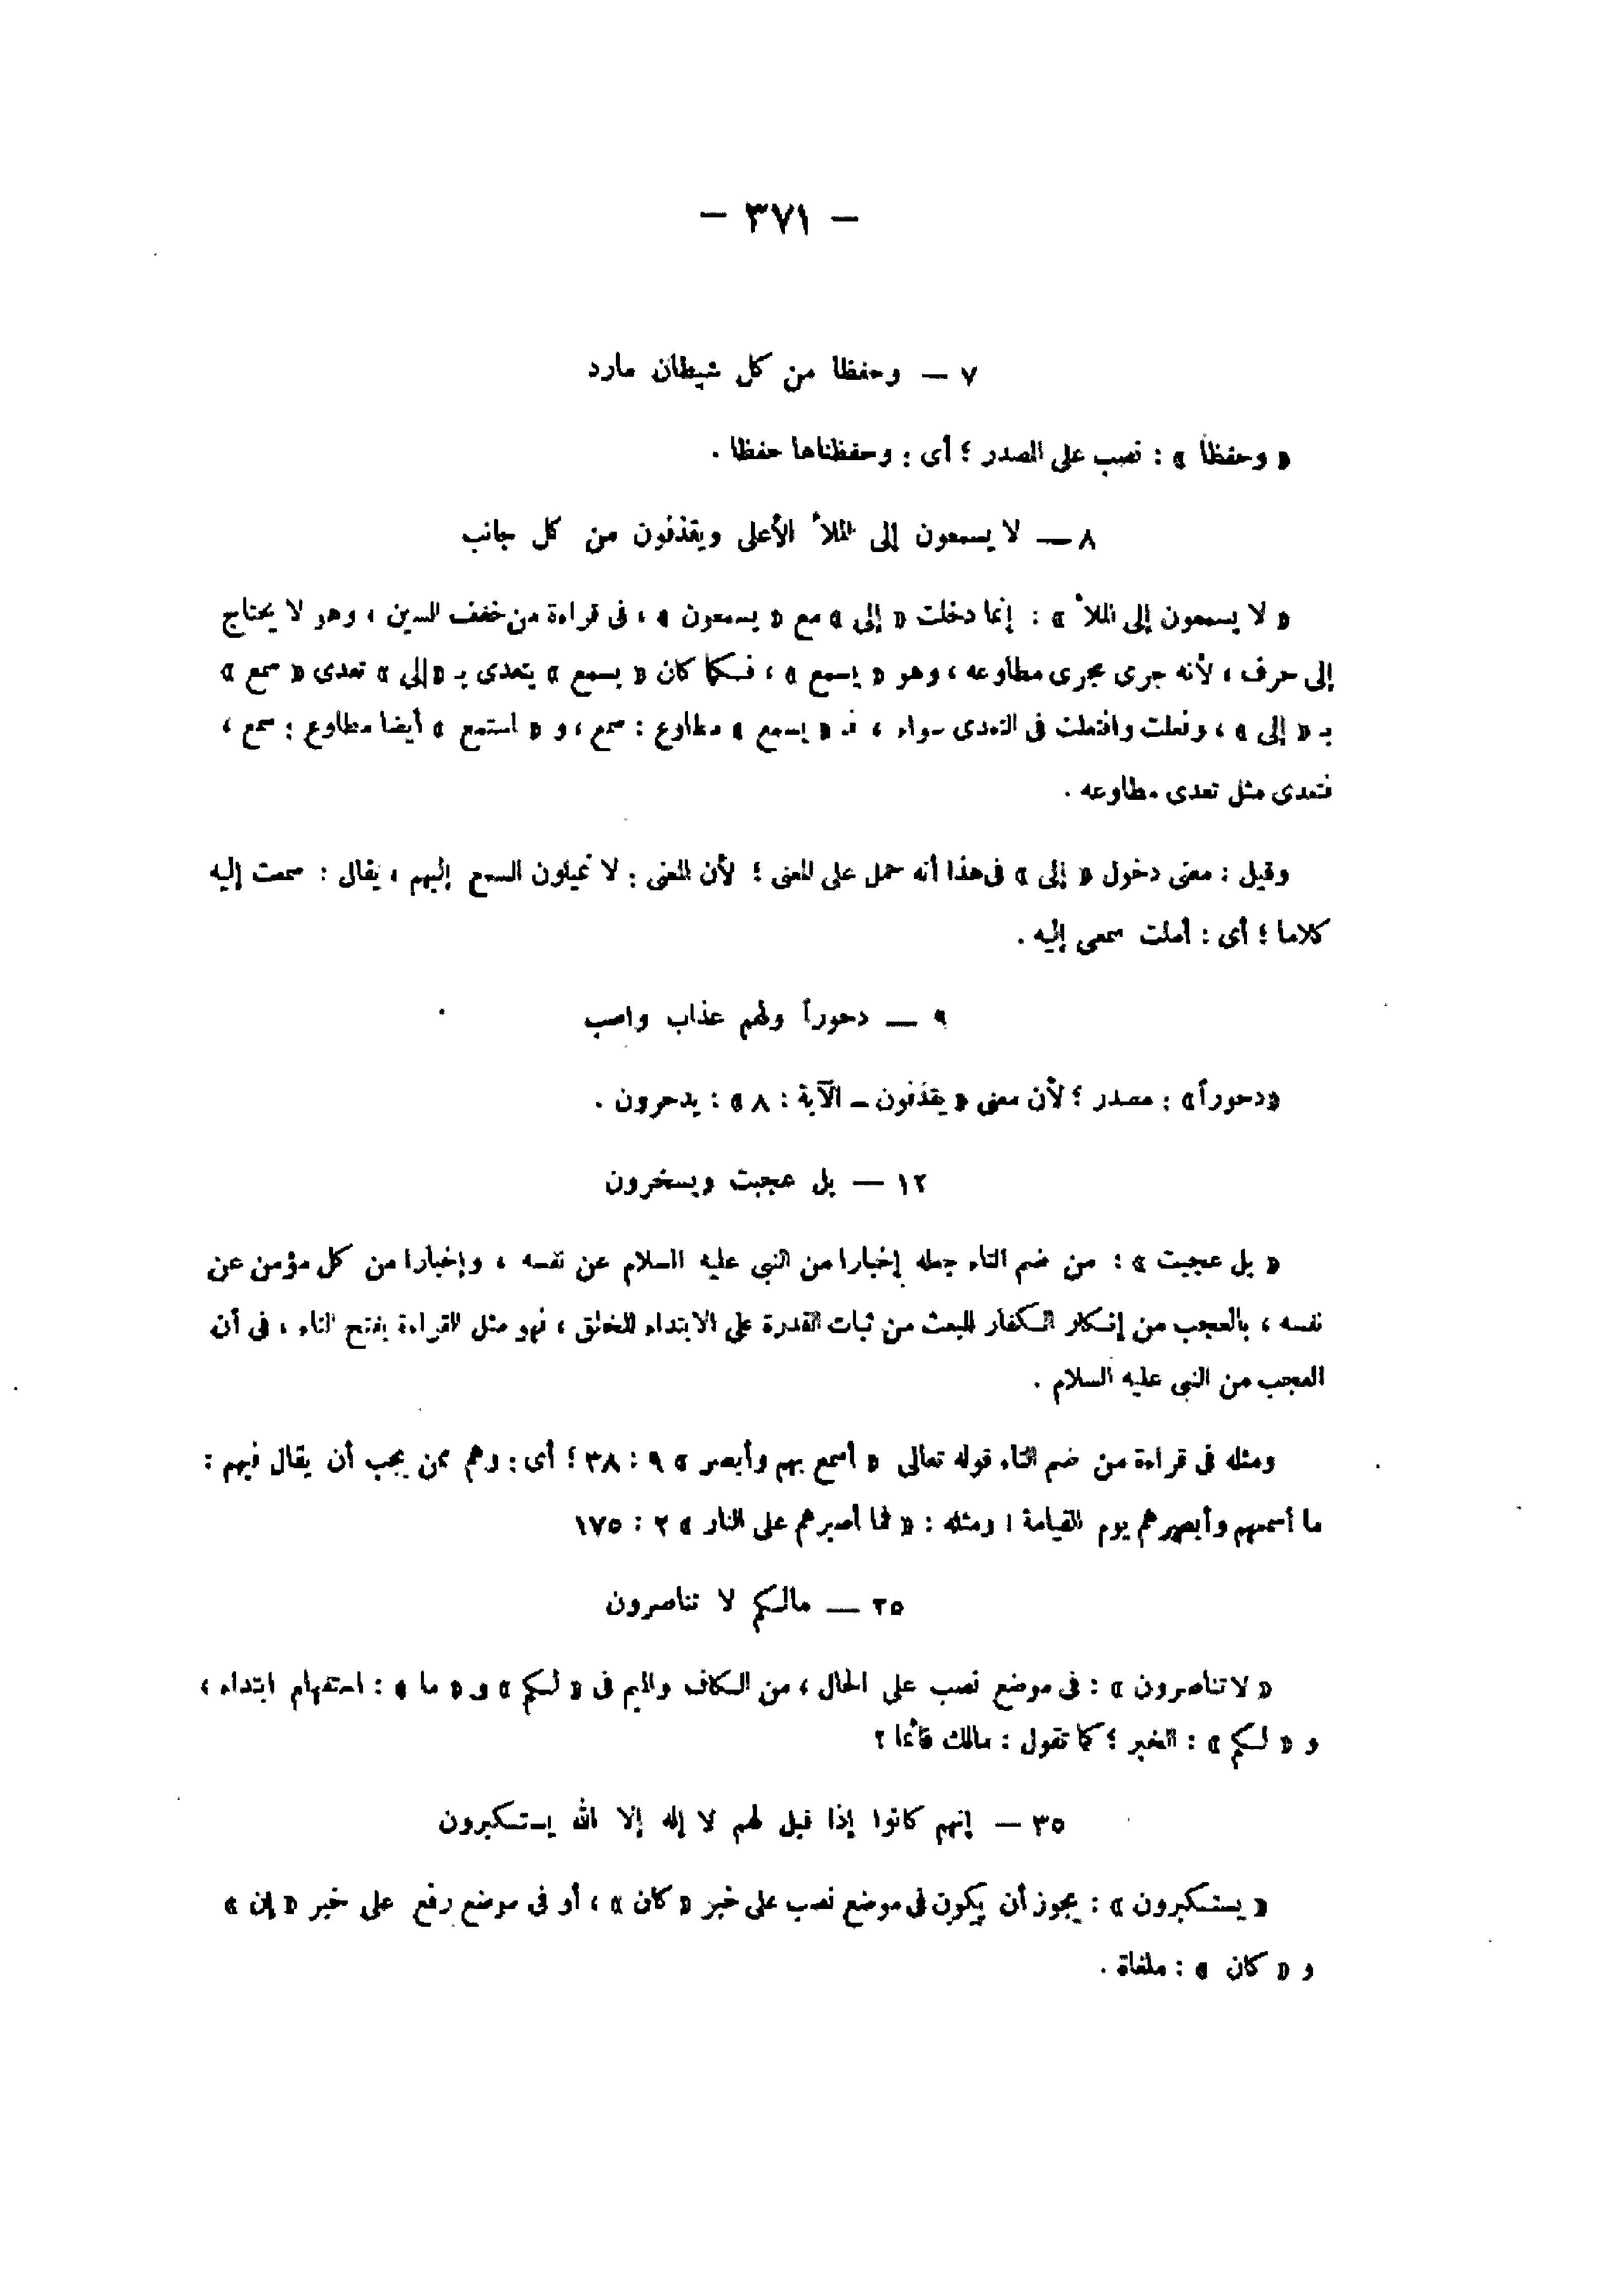 — ٣٧١ —
٧ — وحفظا من كل شيطان مارد
« وحفظا » : نصب على المصدر ؛ أى : وحفظناها حفظا .
٨ — لا يسمعون إلى الملأ الأعلى ويقذفون من كل جانب
« لا يسمعون إلى الملأ » : إنما دخلت « إلى » مع « يسمعون » ، فى قراءة من خفف السين ، وهو لا يحتاج
إلى حرف ، لأنه جرى مجرى مطاوعه ، وهو « يسمع » ، فكما كان « يسمع » يتعدى بـ « إلى » تعدى « سمع »
بـ « إلى » ، وفعلت وافتعلت فى التعدى سواء ، فـ « يسمع » مطاوع : سمع ، و « استمع » أيضا مطاوع : سمع ،
فتعدى مثل تعدى مطاوعه .
وقيل : معنى دخول « إلى » فى هذا أنه حمل على المعنى ؛ لأن المعنى : لا يميلون السمع إليهم ، يقال : سمعت إليه
كلاما ؛ أى : أملت سمعى إليه .
٩ — دحوراً ولهم عذاب واصب
«دحوراً» : مصدر ؛ لأن معنى « يقذفون ــ الآية : ٨ » : يدحرون .
١٢ — بل عجبت ويسخرون
« بل عجبت » : من ضم التاء جعله إخبارا من النبى عليه السلام عن نفسه ، وإخبارا من كل مؤمن عن
نفسه ، بالعجب من إنكار الكفار للبعث من ثبات القدرة على الابتداء للخلق ، فهو مثل القراءة بفتح التاء ، فى أن
العجب من النبى عليه السلام .
ومثله فى قراءة من ضم التاء قوله تعالى « أسمع بهم وأبصر » ٩ : ٣٨ ؛ أى : وهم ممن يجب أن يقال فيهم :
ما أسمعهم وأبصرهم يوم القيامة ؛ ومثله : « فما أصبرهم على النار » ٢ : ١٧٥
٢٥ — مالكم لا تناصرون
« لا تناصرون » : فى موضع نصب على الحال ، من الكاف والميم فى « لكم » و « ما » : استفهام ابتداء ،
و « لكم » : الخبر ؛ كما تقول : مالك قائما ؟
٣٥ — إنهم كانوا إذا قيل لهم لا إله إلا الله يستكبرون
« يستكبرون » : يجوز أن يكون فى موضع نصب على خبر « كان » ، أو فى موضع رفع على خبر « إن »
و « كان » : ملغاة .